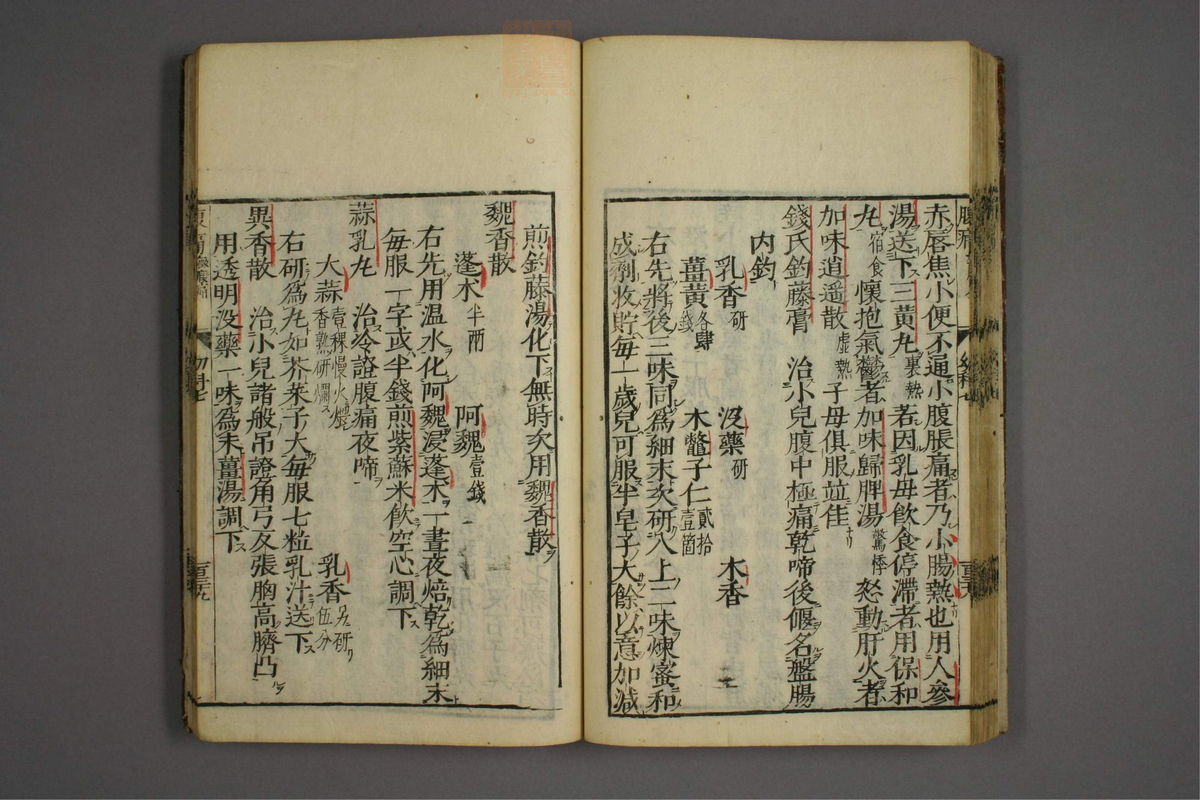 赤唇焦小便不通小腹脹痛者乃小腸熱也用人參
湯送下三黃丸裏熱若因乳母飲食停滯者用保和
丸宿食懷抱氣鬱者加味歸脾湯驚悸怒動肝火者
加味逍遥散虛熱子母俱服並佳
錢氏釣藤膏 治小兒腹中極痛乾啼後偃名盤腸
内釣
乳香研 沒藥研 木香
薑黃各肆錢 木鼈子仁貳拾壹箇
右先將後三味同爲細末次研入上二味煉蜜和
成劑收貯每一歲兒可服半皂子大餘以意加減
煎釣藤湯化下無時次用魏香散
魏香散
蓬朮半兩 阿魏壹錢
右先用温水化阿魏浸蓬朮一晝夜焙乾爲細末
每服一字或半錢煎紫蘇米飲空心調下
蒜乳丸 治冷證腹痛夜啼
大蒜壹稞慢火煨香熟研爛 乳香另研伍分
右研爲丸如芥菜子大每服七粒乳汁送下
異香散 治小兒諸般吊證角弓反張胸高臍凸
用透明沒藥一味爲末薑湯調下